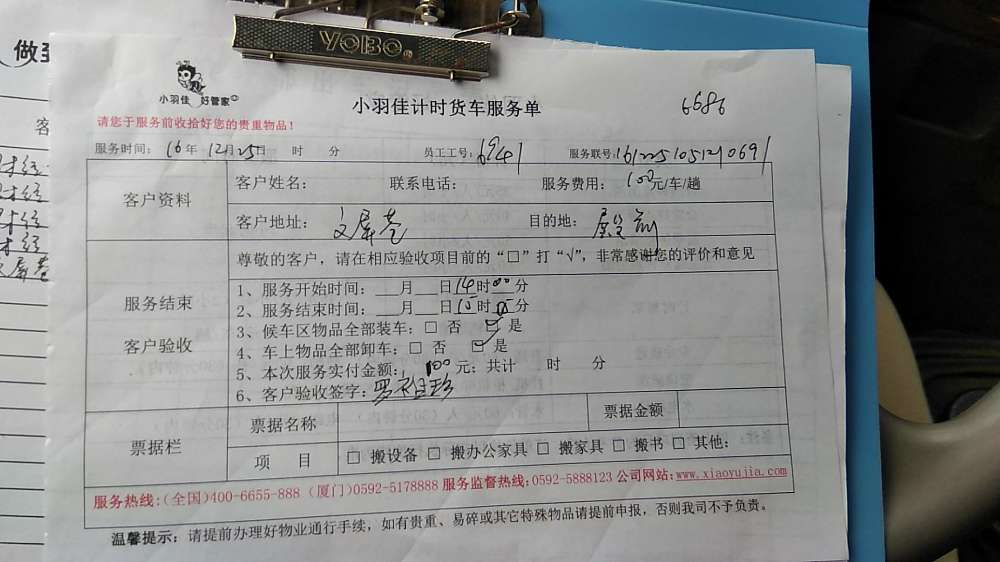 YOBO
做至
小羽佳 好管家
小羽佳计时货车服务单
6686
请您于服务前收拾好您的贵重物品！
服务时间： 16年 12月25日 时 分 员工工号： 6941 服务联号：1612251051210691
客户资料
客户姓名： 联系电话： 服务费用： 100元/车/趟
客户地址： 文屏巷 目的地： 殿前
服务结束
客户验收
尊敬的客户，请在相应验收项目前的“□”打“√”，非常感谢您的评价和意见
1、服务开始时间：___月___日14时00分
2、服务结束时间：___月___日15时05分
3、候车区物品全部装车：□ 否 ☑ 是
4、车上物品全部卸车：□ 否 ☑ 是
5、本次服务实付金额： 100元；共计 时 分
6、客户验收签字：
票据栏
票据名称 票据金额
项 目 □ 搬设备 □ 搬办公家具 □ 搬家具 □ 搬书 □ 其他：
服务热线：(全国)400-6655-888 (厦门)0592-5178888 服务监督热线：0592-5888123 公司网站：www.xiaoyujia.com
温馨提示：请提前办理好物业通行手续，如有贵重、易碎或其它特殊物品请提前申报，否则我司不予负责。